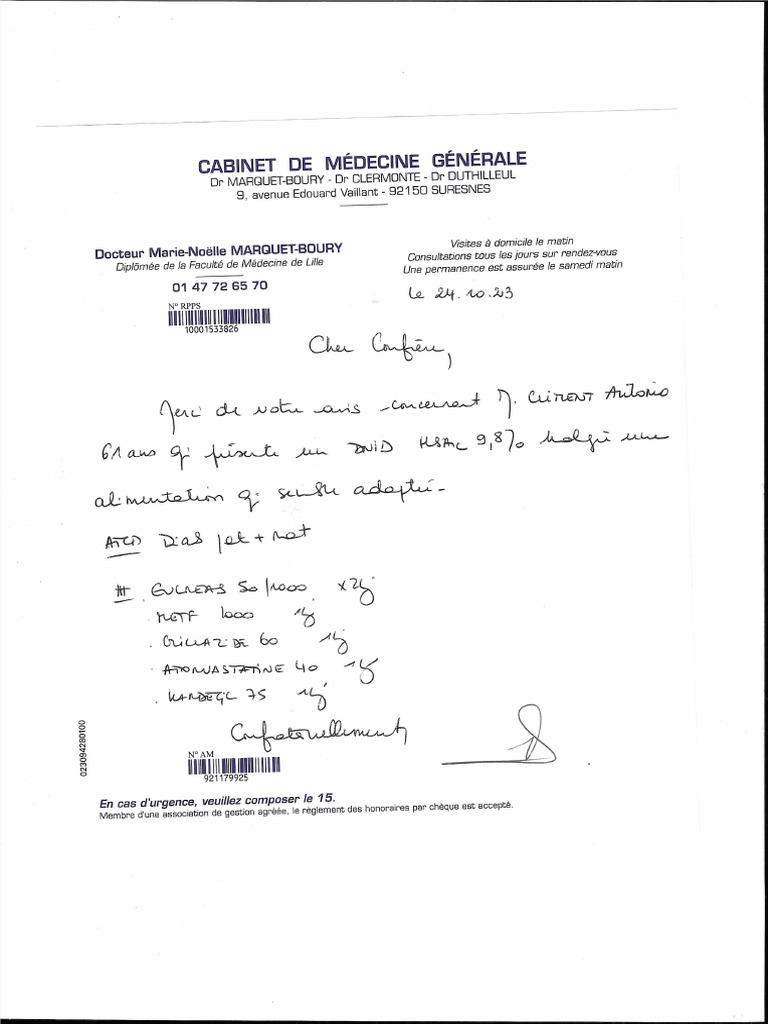 CABINET DE MÉDECINE GÉNÉRALE
Dr MARQUET-BOURY - Dr CLERMONTE - Dr DUTHILLEUL
9, avenue Edouard Vaillant - 92150 SURESNES
Docteur Marie-Noëlle MARQUET-BOURY
Diplômée de la Faculté de Médecine de Lille
01 47 72 65 70
N° RPPS
10001533826
Visites à domicile le matin
Consultations tous les jours sur rendez-vous
Une permanence est assurée le samedi matin
le 24.10.23
Cher Confrère,
Merci de votre avis concernant M. Antonio
61 ans qi présente un DNID 9,8% malgré une
alimentation qi semble adaptée.
ATCD Diab pat + mat
EUCREAS 50/1000 x2/j
METF 1000 1/j
60 1/j
ATORVASTATINE 40 1/j
KARDEGIC 75 1/j
Confraternellement
N° AM
921179925
023094280100
En cas d'urgence, veuillez composer le 15.
Membre d'une association de gestion agréée, le règlement des honoraires par chèque est accepté.